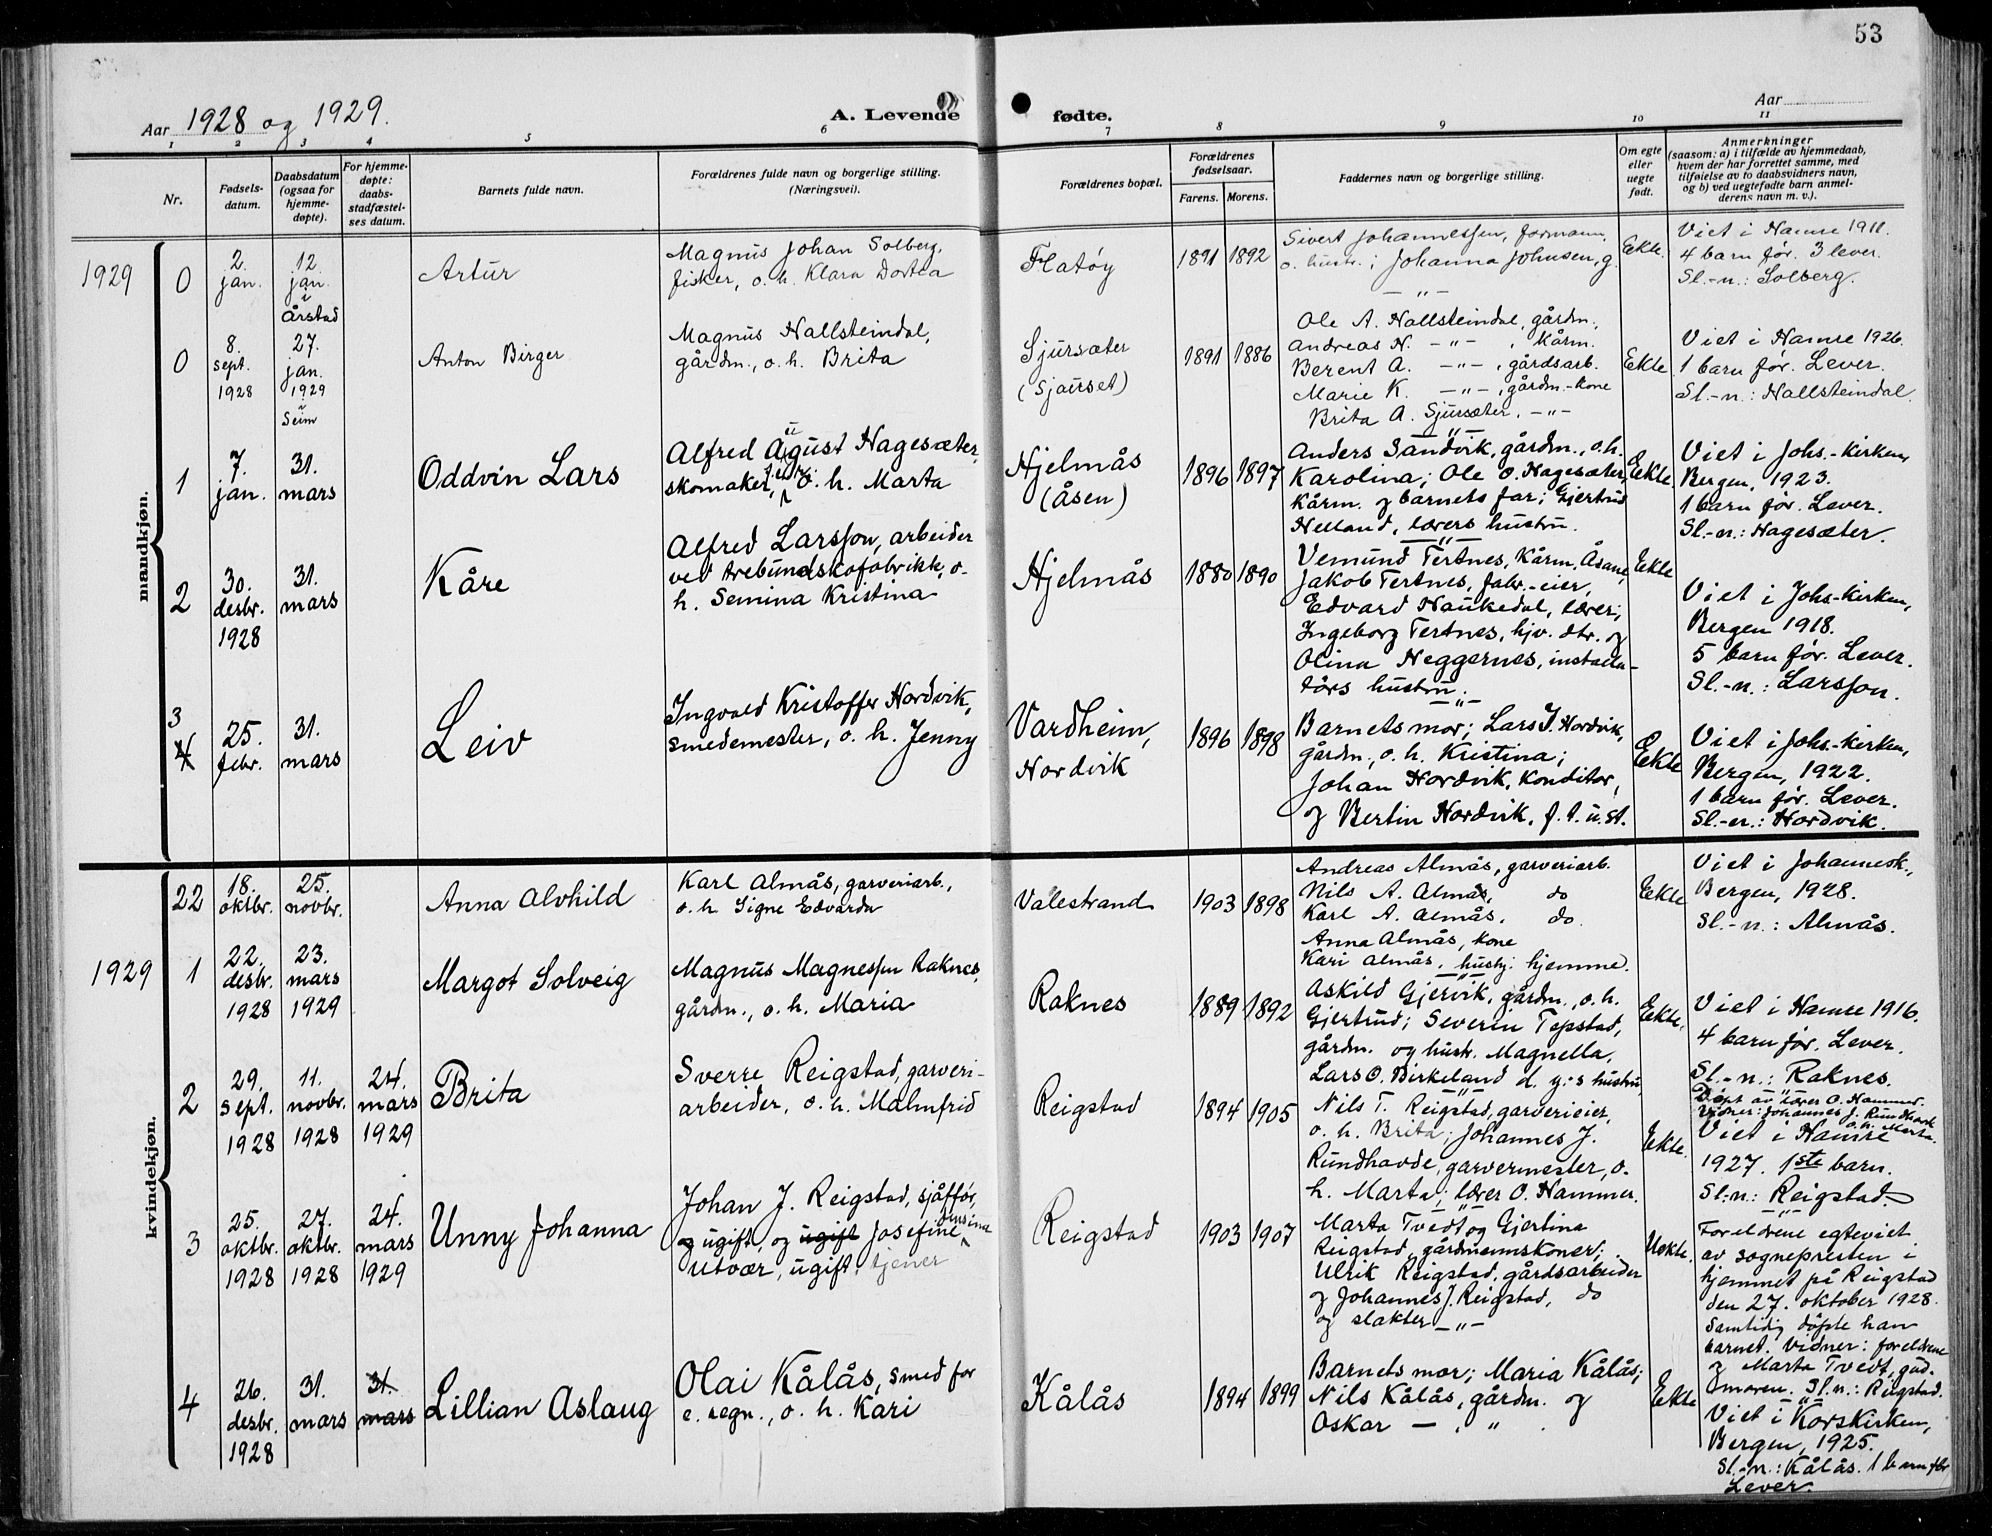 53
Aar 1928 og 1929.
A. Levende fødte.
Aar
1 2 3 4 5 6 7 8 9 10 11
Nr.
Fødsels-
datum.
Daabsdatum
(ogsaa for
hjemme-
døpte).
For hjemme-
døpte:
daabs-
stadfæstel-
ses datum.
Barnets fulde navn.
Forældrenes fulde navn og borgerlige stilling.
(Næringsvei).
Forældrenes bopæl.
Forældrenes
fødselsaar.
Farens. Morens.
Faddernes navn og borgerlige stilling.
Om egte
eller
uegte
født.
Anmerkninger
(saasom: a) i tilfælde av hjemmedaab,
hvem der har forrettet samme, med
tilføielse av to daabsvidners navn,
og b) ved uegtefødte barn anmel-
derens navn m. v.).
mandkjøn.
1929
0
2.
jan.
12.
jan.
i
Årstad
Artur
Magnus Johan Solberg,
fisker, o. h. Klara Dortea
Flatøy
1891 1892
Sivert Johannessen, formann,
o. hustr.; Johanna Johnsen, g.
— " —
Ekte.
Viet i Hamre 1911.
4 barn før. 3 lever.
Sl.-n.: Solberg.
0
8.
sept.
1928
27.
jan.
1929
i
Seim
Anton Birger
Magnus Hallsteindal,
gårdm., o. h. Brita
Sjursæter
(Sjauset)
1891 1886
Ole A. Hallsteindal, gårdm.,
Andreas H. — " — , kårm.
Berent A. — " — , gårdsarb.
Marie K. — " — , gårdm.-kone
Brita A. Sjursæter, — " —
Ekte
Viet i Hamre 1926.
1 barn før. Lever.
Sl.-n.: Hallsteindal.
1
7.
jan.
31.
mars
Oddvin Lars
Alfred August Hagesæter,
skomaker, o. h. Marta
Hjelmås
(Åsen)
1896 1897
Anders Sandvik, gårdm., o. h.
Karolina; Ole O. Hagesæter,
kårm. og barnets far; Gjertrud
Helland, lærers hustru.
Ekte.
Viet i Johs.-kirken,
Bergen, 1923.
1 barn før. Lever.
Sl.-n.: Hagesæter.
2
30.
desbr.
1928
31.
mars
Kåre
Alfred Larsson, arbeider
ved trebundskofabrikk, o.
h. Semina Kristina
Hjelmås
1880 1890
Vemund Tertnes, kårm. Åsane,
Jakob Tertnes, fabr.-eier,
Edvard Haukedal, lærer;
Ingeborg Tertnes, hjv. dtr. og
Olina Heggernes, installa-
törs hustru.
Ekte
Viet i Johs-kirken,
Bergen 1918.
5 barn før. Lever.
Sl.-n.: Larsson.
3
4
25.
febr.
31.
mars
Leiv
Ingvald Kristoffer Hordvik,
smedemester, o. h. Jenny
Vardheim,
Hordvik
1896 1898
Barnets mor; Lars I. Hordvik,
gårdm., o. h. Kristina;
Johan Hordvik, konditor,
og Bertin Hordvik, f. t. u. st.
Ekte
Viet i Johs.-kirken,
Bergen, 1922.
1 barn før. Lever.
Sl.-n.: Hordvik.
kvindekjøn.
22
18.
oktbr.
25.
novbr.
Anna Alvhild
Karl Almås, garveriarb.,
o. h. Signe Edvarda
Valestrand
1903 1898
Andreas Almås, garveriarb.
Nils A. Almås, do
Karl A. Almås, do
Anna Almås, kone
Kari Almås, hushj. hjemme.
Ekte
Viet i Johannesk.,
Bergen, 1928.
Sl.-n.: Almås.
1929
1
22.
desbr.
1928
23.
mars
1929
Margot Solveig
Magnus Magnessen Raknes,
gårdm., o. h. Maria
Raknes
1889 1892
Askild Gjervik, gårdm., o. h.
Gjertrud; Severin Tepstad,
gårdm. og hustr. Magnella,
Lars O. Birkeland d. y.s hustru
Ekte.
Viet i Hamre 1916.
4 barn før. Lever.
Sl.-n.: Raknes.
2
29.
sept.
1928
11.
novbr.
1928
24.
mars
1929
Brita
Sverre Reigstad, garveri-
arbeider, o. h. Malmfrid
Reigstad
1894 1905
Nils T. Reigstad, garverieier,
o. h. Brita; Johannes J.
Rundhovde, garvermester, o.
h. Marta; lærer O. Hammer.
Ekte.
Døpt av lærer O. Hammer.
Vidner: Johannes J. Rundhovde
o. h. Marta.
Viet i Hamre
1927. 1ste barn.
Sl.-n.: Reigstad.
3
25.
oktbr.
1928
27.
oktbr.
1928
24.
mars
1929
Unny Johanna
Johan J. Reigstad, sjåffør,
og ugift, og ugift Josefine
Utvær, ugift. tjener
Reigstad
1903 1907
Marta Tvedt og Gjertina
Reigstad, gårdmannskoner;
Ulrik Reigstad, gårdsarbeider
og Johannes J. Reigstad, do
og slakter — " —
Uekte.
Foreldrene egteviet
av sognepresten i
hjemmet på Reigstad
den 27. oktober 1928.
Samtidig døpte han
barnet. Vidner: foreldrene
og Marta Tvedt, gud-
moren. Sl.n.: Reigstad.
4
26.
desbr.
1928
31.
mars
31.
mars
Lillian Aslaug
Olai Kålås, smed for
e. regn., o. h. Kari
Kålås
1894 1899
Barnets mor; Maria Kålås;
Nils Kålås, gårdm. og
Oskar — " —
Ekte
Viet i Korskirken,
Bergen, 1925.
Sl.-n.: Kålås. 1 barn før
Lever.